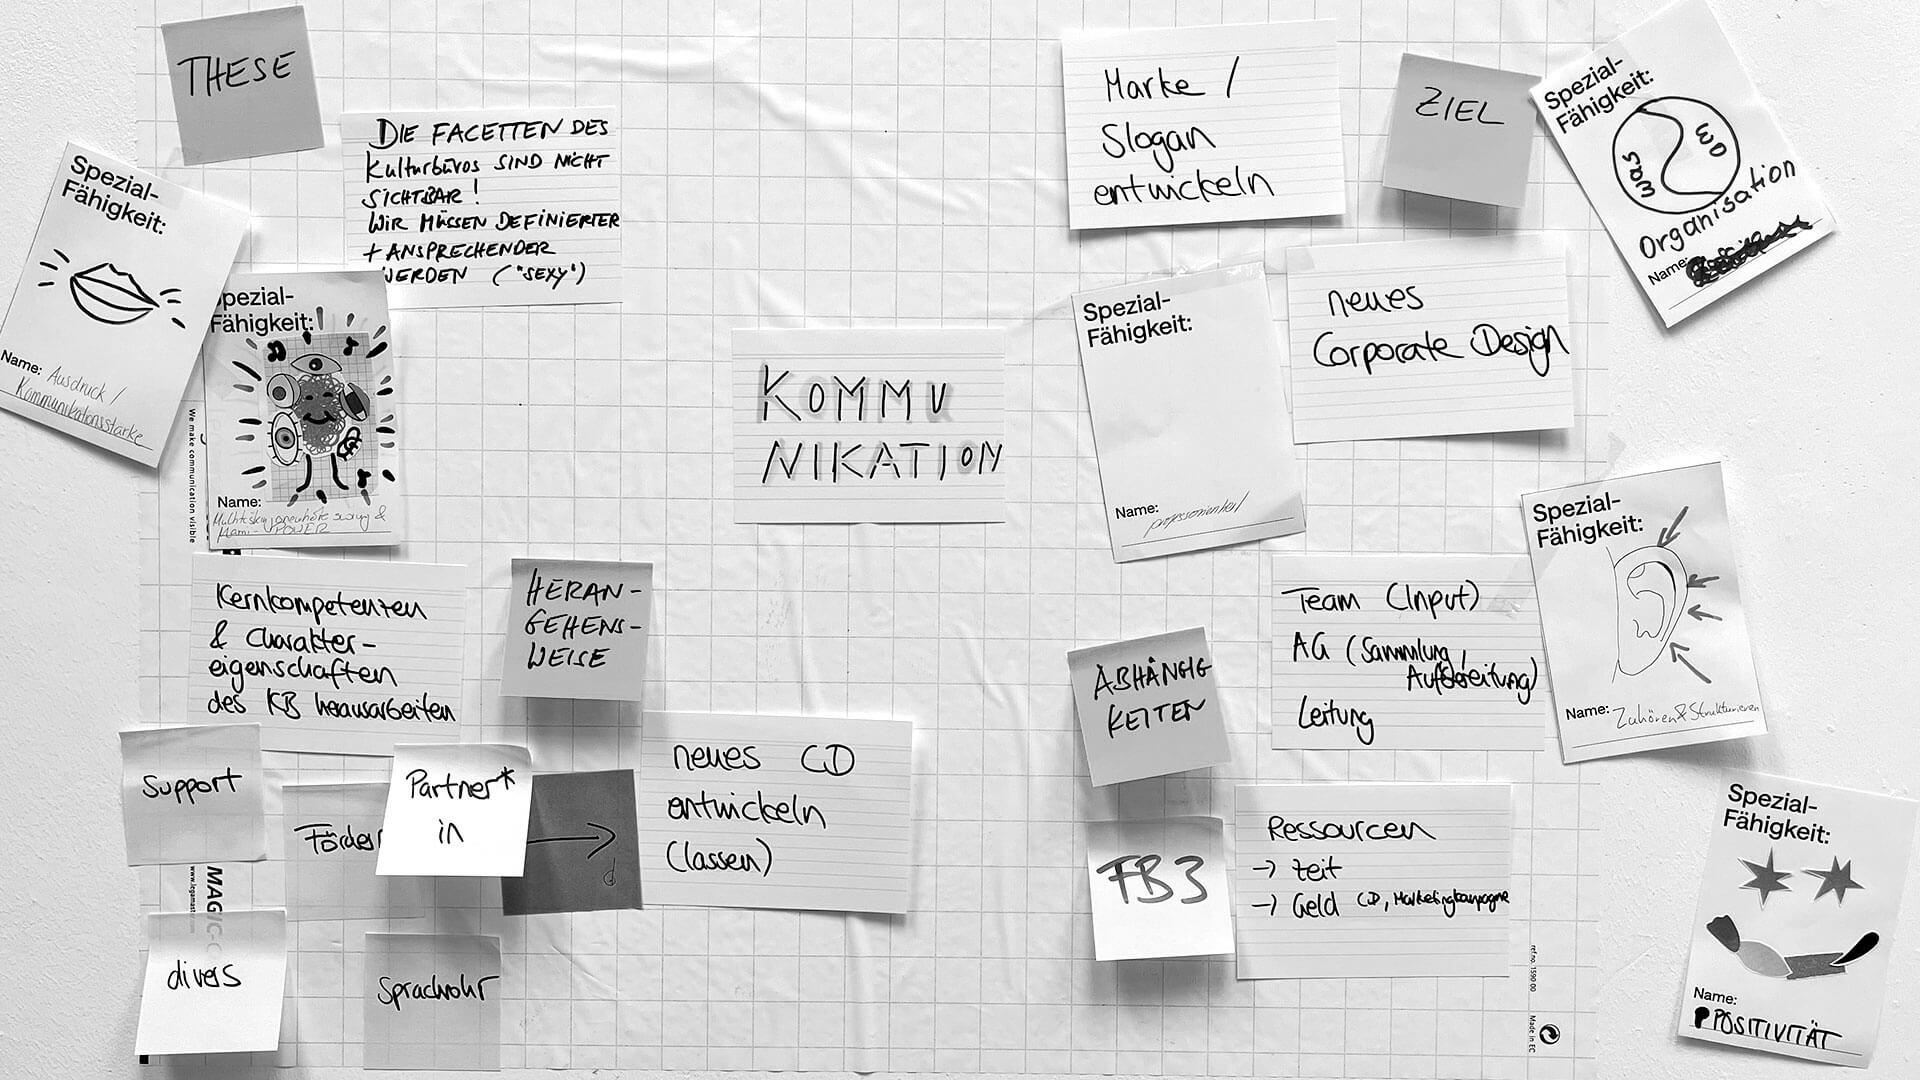 THESE
DIE FACETTEN DES
Kulturbüros SIND NICHT
SICHTBAR!
WIR MÜSSEN DEFINIERTER
+ ANSPRECHENDER
WERDEN ("SEXY")
Spezial-
Fähigkeit:
Name: Ausdruck /
Kommunikationsstärke
Spezial-
Fähigkeit:
Name:
&
POWER
We make communication visible
KOMMU
NIKATION
Marke /
Slogan
entwickeln
ZIEL
Spezial-
Fähigkeit:
was
wo
Organisation
Name:
neues
Corporate Design
Spezial-
Fähigkeit:
Name:
Spezial-
Fähigkeit:
Name: Zuhören & Strukturieren
Kernkompetenzen
& Charakter-
eigenschaften
des KB herausarbeiten
HERAN-
GEHENS-
WEISE
Support
Förder
Partner*
in
divers
Sprachrohr
MAGIC-C
www.legamast
neues CD
entwickeln
(lassen)
ABHÄNGIG
KEITEN
Team (Input)
AG (Sammlung,
Aufbereitung)
Leitung
FB3
Ressourcen
→ Zeit
→ Geld CD, Marketingkampagne
Spezial-
Fähigkeit:
Name:
POSITIVITÄT
ref.no. 1590 00
Made in EC